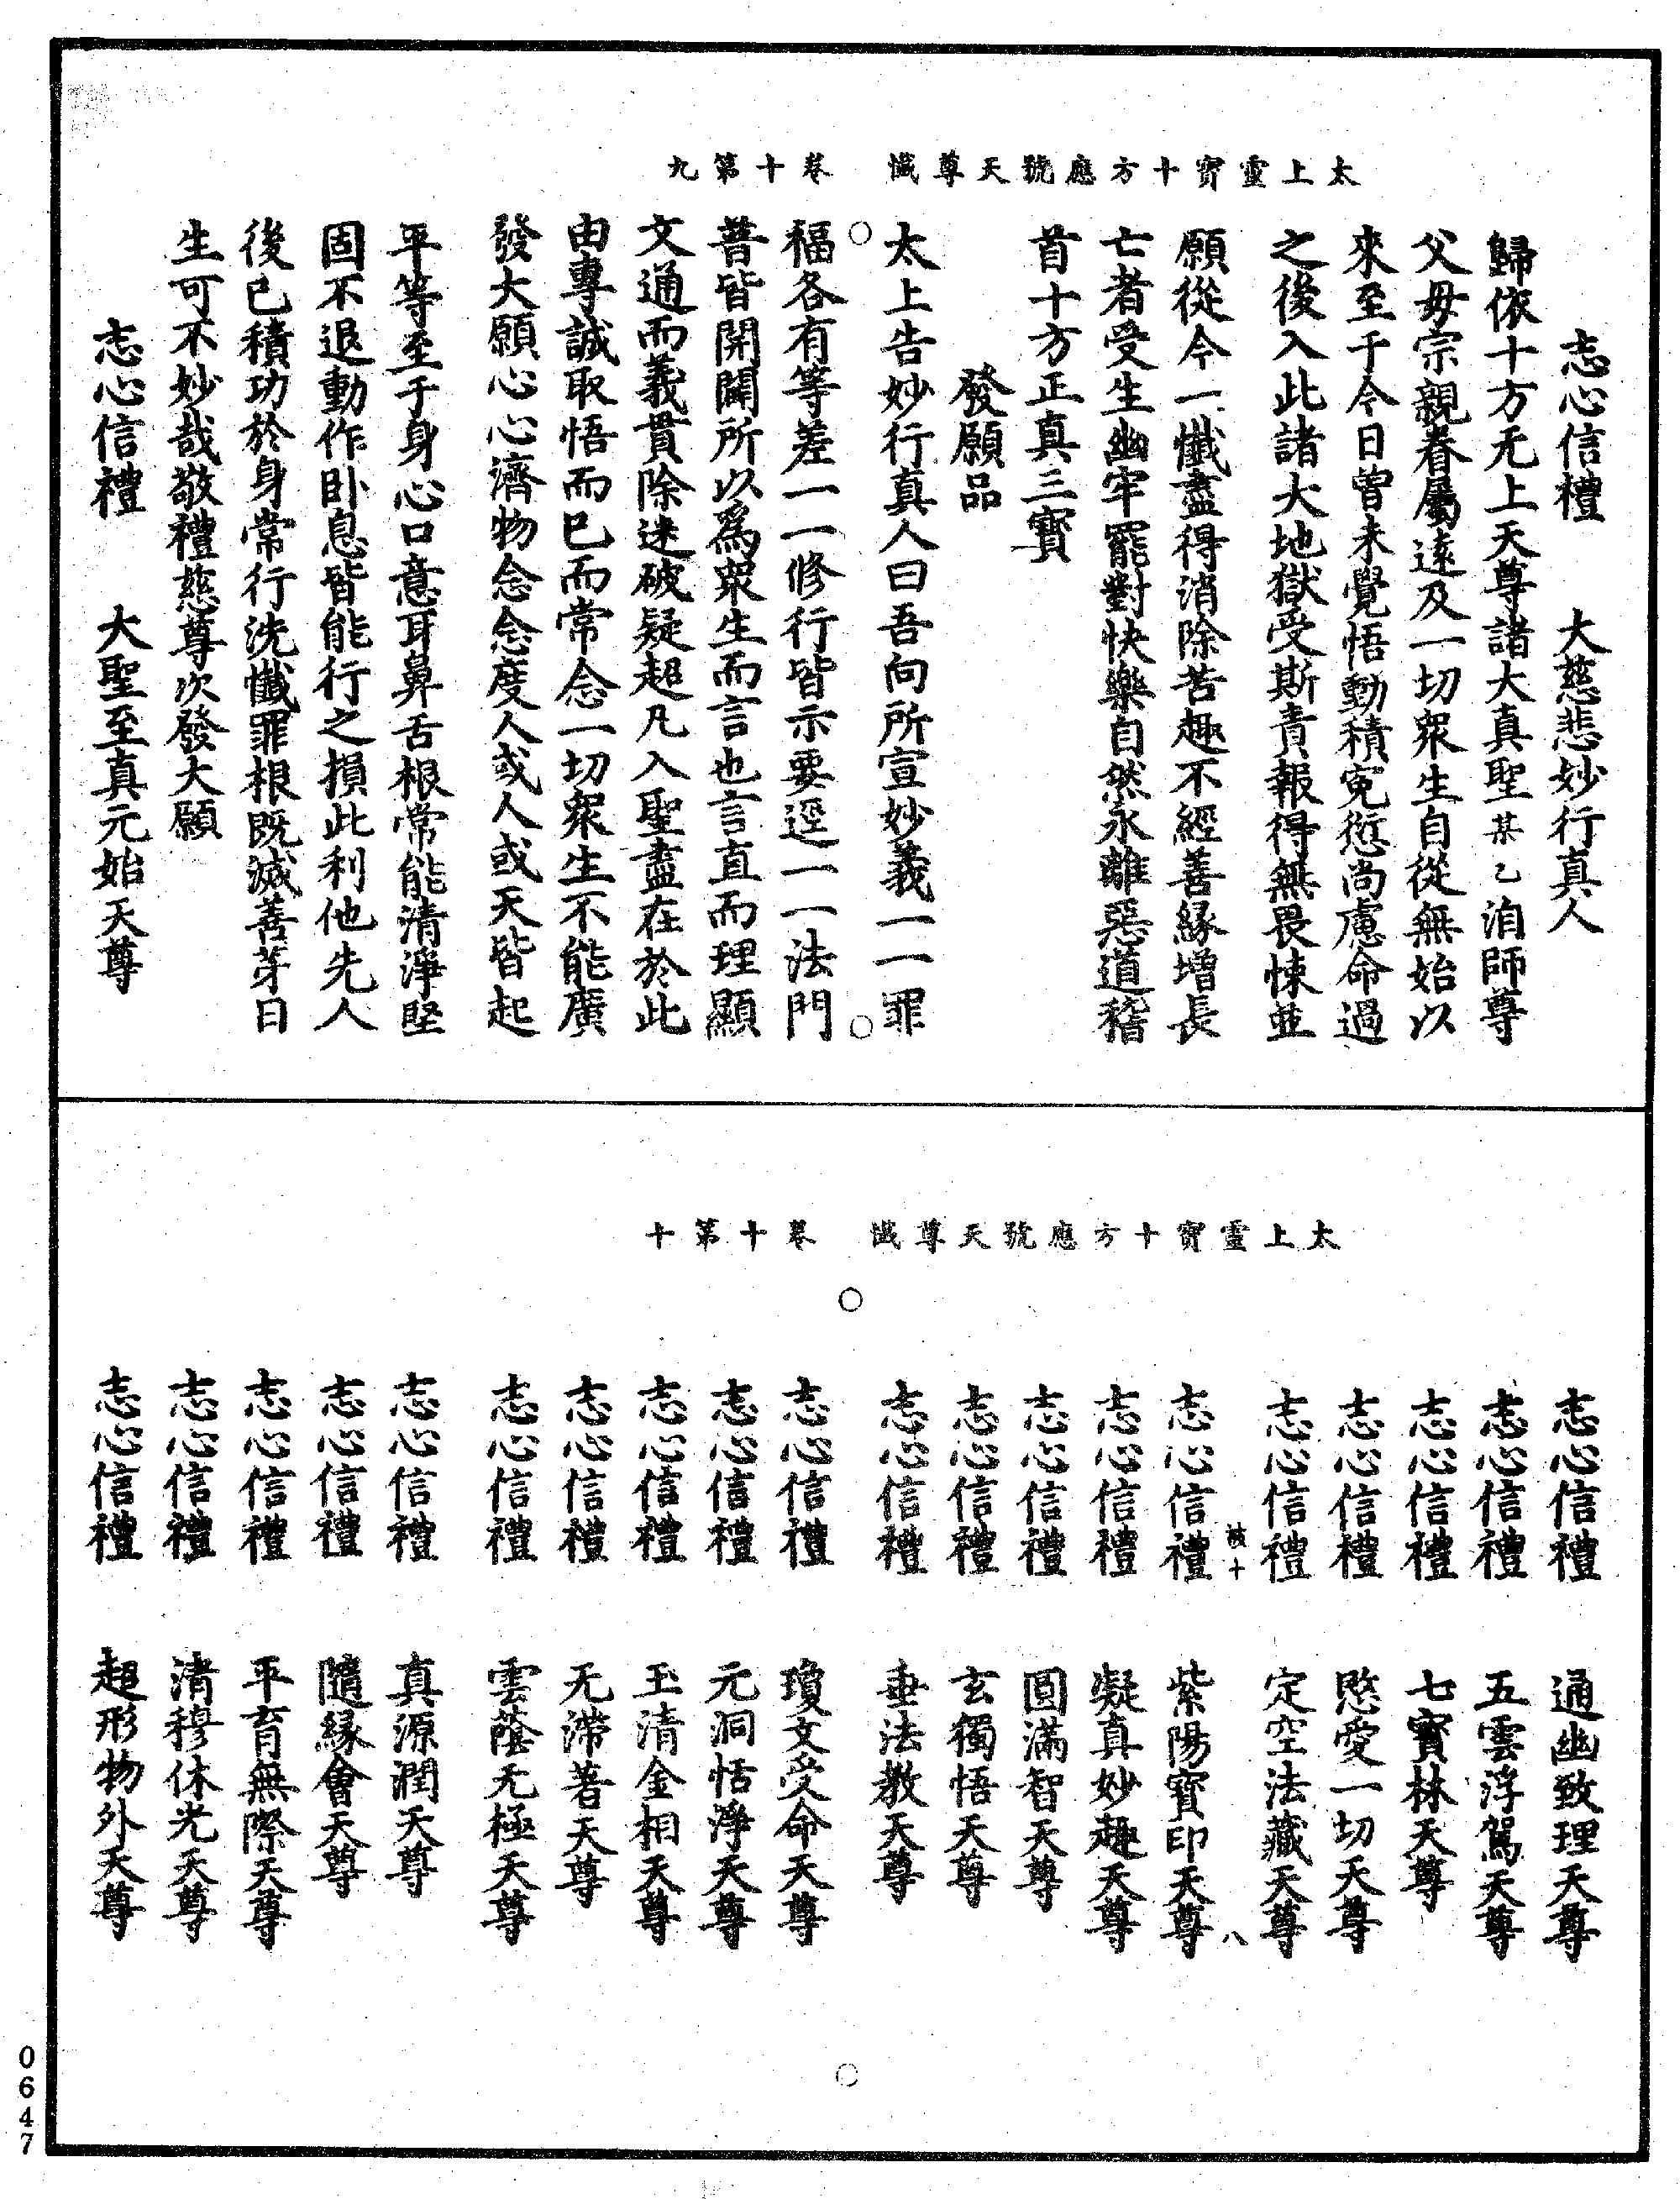 太上靈寶十方應號天尊懺　卷十第九
志心信禮　大慈悲妙行真人
歸依十方无上天尊諸大真聖某乙洎師尊
父母宗親眷屬遠及一切衆生自從無始以
來至于今日曾未覺悟動積寃愆尚慮命過
之後入此諸大地獄受斯責報得無畏悚並
願從今一懺盡得消除苦趣不經善緣增長
亡者受生幽牢罷對快樂自然永離惡道稽
首十方正真三寶
發願品
太上告妙行真人曰吾向所宣妙義一一罪
福各有等差一一修行皆示要逕一一法門
普皆開闡所以爲衆生而言也言直而理顯
文通而義貫除迷破疑超凡入聖盡在於此
由專誠取悟而已而常念一切衆生不能廣
發大願心心濟物念念度人或人或天皆起
平等至于身心口意耳鼻舌根常能清淨堅
固不退動作卧息皆能行之損此利他先人
後已積功於身常行洗懺罪根既滅善芽日
生可不妙哉敬禮慈尊次發大願
志心信禮　大聖至真元始天尊
太上靈寶十方應號天尊懺　卷十第十
志心信禮　通幽致理天尊
志心信禮　五雲浮駕天尊
志心信禮　七寶林天尊
志心信禮　愍愛一切天尊
志心信禮　定空法藏天尊
八
志心信禮　紫陽寶印天尊
志心信禮　凝真妙趣天尊
志心信禮　圓滿智天尊
志心信禮　玄獨悟天尊
志心信禮　垂法教天尊
志心信禮　瓊文受命天尊
志心信禮　元洞恬淨天尊
志心信禮　玉清金相天尊
志心信禮　无滯著天尊
志心信禮　雲蔭无極天尊
志心信禮　真源潤天尊
志心信禮　隨緣會天尊
志心信禮　平育無際天尊
志心信禮　清穆休光天尊
志心信禮　超形物外天尊
0647